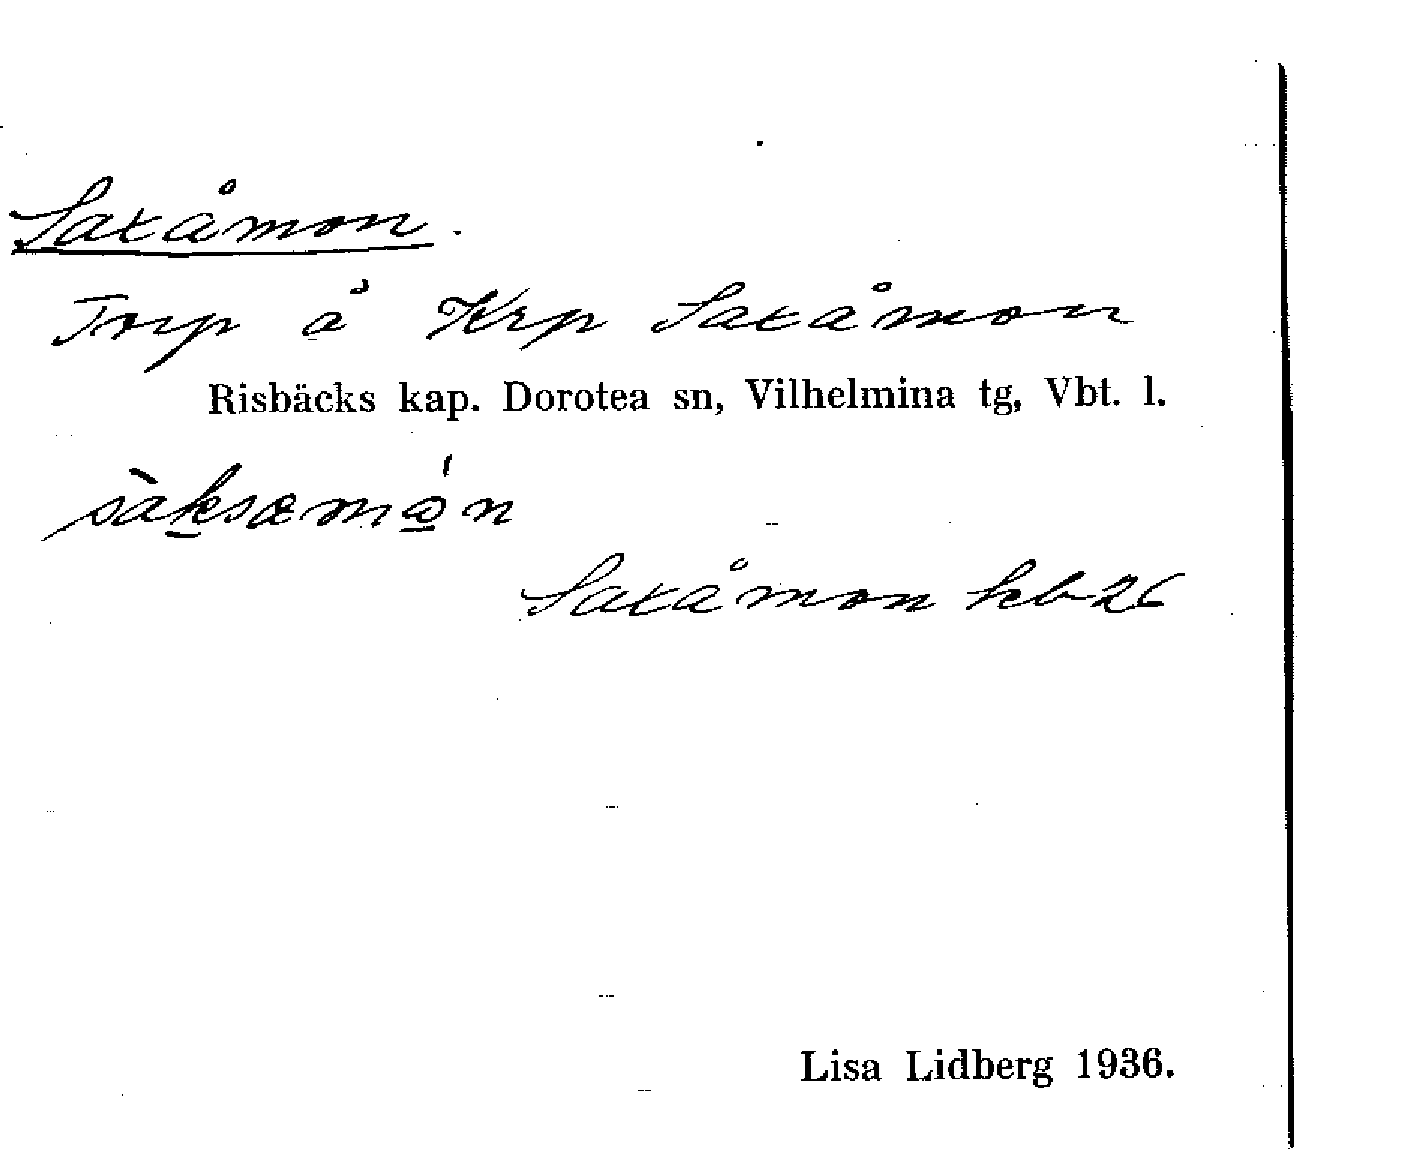 Saxåmon.
Torp å Krp Saxåmon
Risbäcks kap. Dorotea sn, Vilhelmina tg, Vbt. l.
sàksæmó̱n
Saxåmon kb 26
Lisa Lidberg 1936.